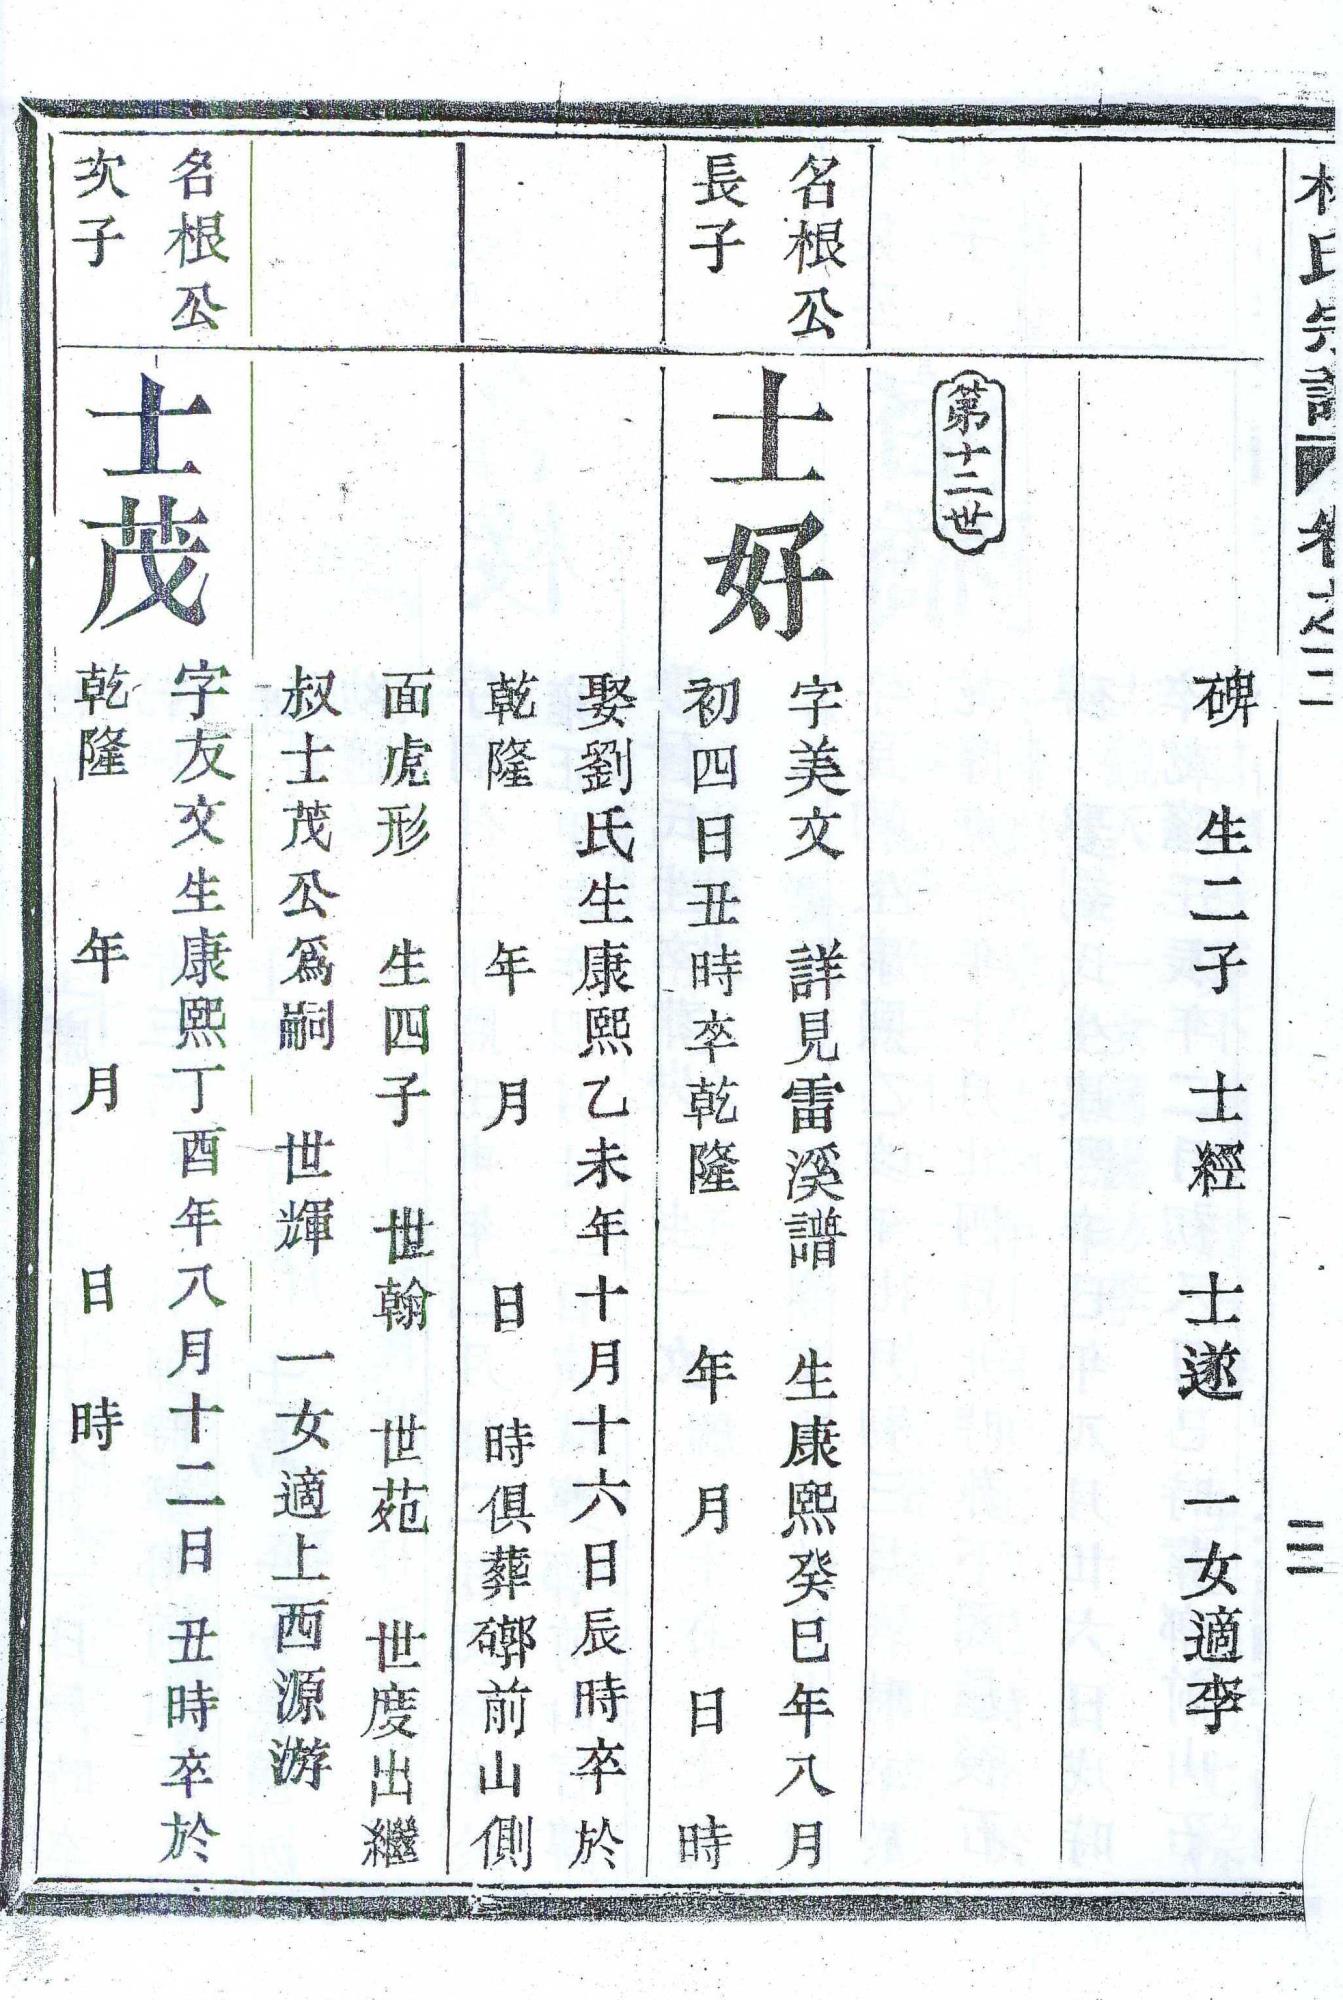 氏宗譜 卷之二
三
碑 生二子 士經 士遂 一女適李
第十二世
名根公
長子
士好
字美文 詳見雷溪譜 生康熙癸巳年八月
初四日丑時卒乾隆 年 月 日 時
娶劉氏生康熙乙未年十月十六日辰時卒於
乾隆 年 月 日 時俱葬磜前山側
面虎形 生四子 世翰 世苑 世度出繼
叔士茂公為嗣 世輝 一女適上西源游
名根公
次子
士茂
字友文生康熙丁酉年八月十二日丑時卒於
乾隆 年 月 日 時